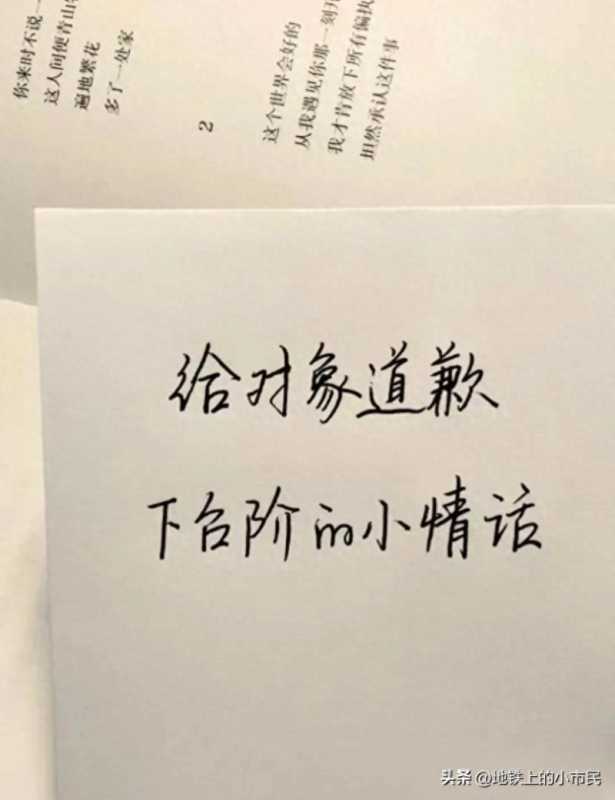 你来时不说一
这人间便青山
遍地繁花
多了一处家
2
这个世界会好的
从我遇见你那一刻
我才肯放下所有偏执
坦然承认这件事
给对象道歉
下台阶的小情话
头条 @地铁上的小市民